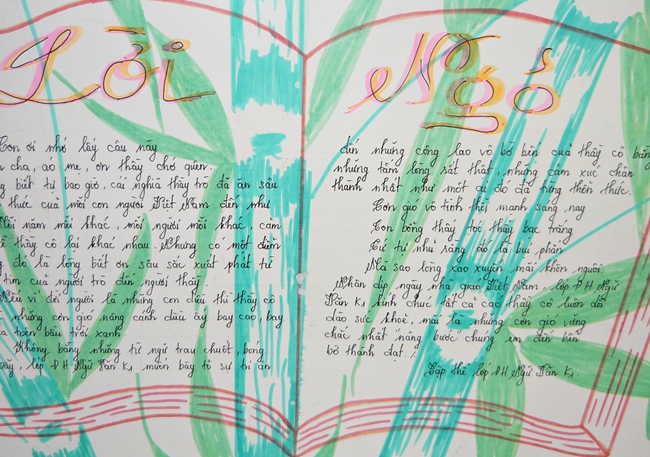 Lời Ngỏ
Con ơi nhớ lấy câu này
cha, áo mẹ, ơn thầy chớ quên.
biết tự bao giờ, cái nghĩa thầy trò đã ăn sâu
thức của mỗi con người Việt Nam dân như
Mỗi năm mỗi khác, mỗi người mỗi khác, cảm
về thầy cô lại khác nhau. Nhưng có một điểm
đó là lòng biết ơn sâu sắc xuất phát từ
của người trò đến người thầy
Nếu ví đời người là những con diều thì thầy cô
những cơn gió nâng cánh diều ấy bay cao, bay
trên bầu trời xanh.
Không bằng những từ ngữ trau chuốt, bóng
bẩy, lớp ĐH Ngữ Văn K1 muốn bày tỏ sự tri ân
đến những công lao vô bờ bến của thầy cô bằng
những tấm lòng rất thật, những cảm xúc chân
thành nhất như một cái gì đó đã từng thổn thức
Cơn gió vô tình thổi mạnh sáng nay
Con bỗng thấy tóc thầy bạc trắng
Cứ tự nhủ rằng đó là bụi phấn
Mà sao lòng xao xuyến mãi khôn nguôi
Nhân dịp ngày nhà giáo Việt Nam, lớp ĐH Ngữ
Văn K1 kính chúc tất cả các thầy cô luôn dồi
dào sức khoẻ, mãi là những cơn gió vững
chắc nhất nâng bước chúng em đến bên
bờ thành đạt!
Tập thể lớp ĐH Ngữ Văn K1.